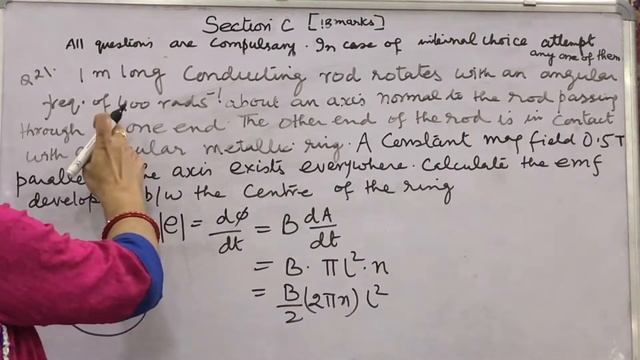 Section C [18marks]
All questions are Compulsary. In case of internal choice attempt
any one of them
Q21. 1 m long Conducting rod rotates with an angular
freq. of 400 rads⁻¹ about an axis normal to the rod passing
through one end. The other end of the rod is in contact
with circular metallic ring. A Constant mag field 0.5T
the axis exists everywhere. Calculate the emf
b/w the Centre of the ring
|e| = dϕ/dt = B dA/dt
= B · πl² · n
= B/2 (2πn) l²